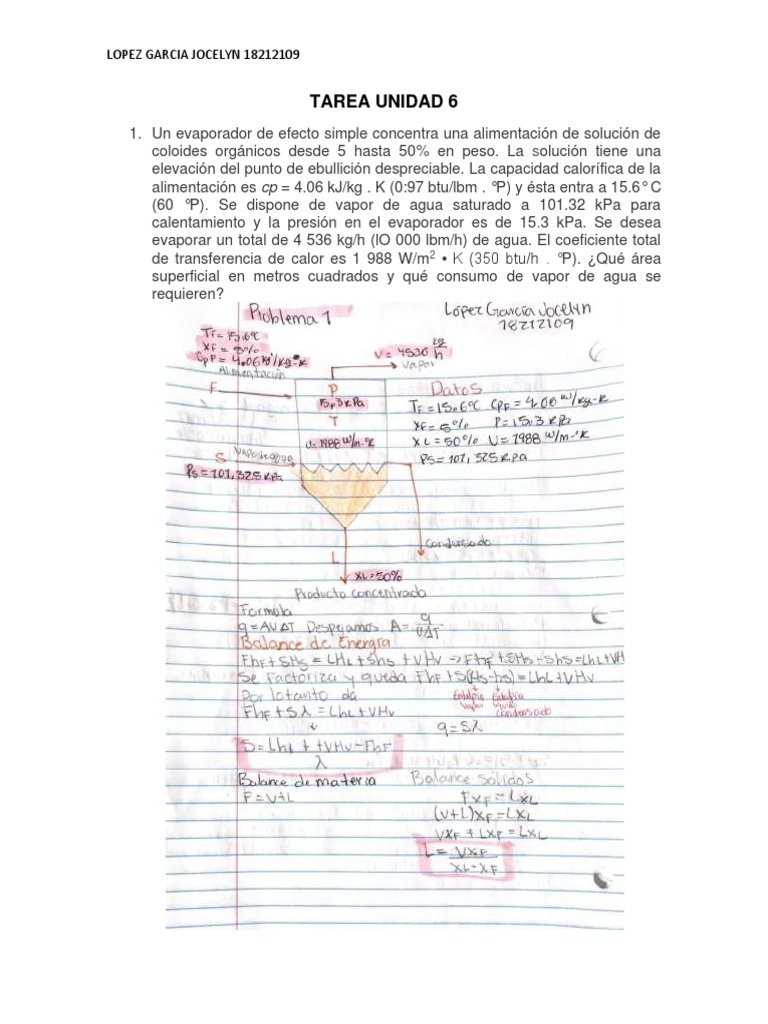 LOPEZ GARCIA JOCELYN 18212109
TAREA UNIDAD 6
1. Un evaporador de efecto simple concentra una alimentación de solución de
coloides orgánicos desde 5 hasta 50% en peso. La solución tiene una
elevación del punto de ebullición despreciable. La capacidad calorífica de la
alimentación es cp = 4.06 kJ/kg . K (0:97 btu/lbm . ºP) y ésta entra a 15.6° C
(60 ºP). Se dispone de vapor de agua saturado a 101.32 kPa para
calentamiento y la presión en el evaporador es de 15.3 kPa. Se desea
evaporar un total de 4 536 kg/h (lO 000 lbm/h) de agua. El coeficiente total
de transferencia de calor es 1 988 W/m² • K (350 btu/h . ºP). ¿Qué área
superficial en metros cuadrados y qué consumo de vapor de agua se
requieren?
Problema 1
López García Jocelyn
18212109
TF=15.6°C
XF=5%
CpF=4.06 KJ/Kg-°K
Alimentación
V=4536 kg/h
vapor
F
P
15.3 kPa
T
U=1988 W/m-°K
S
Vapor de agua
Ps=101,325 kPa
Datos
TF=15.6°C CpF=4.06 KJ/kg-K
XF=5% P=15.3 kPa
XL=50% U=1988 W/m-°K
Ps=101,325 kPa
Condensado
L
XL=50%
Producto concentrado
Formula
q=AUΔT Despejamos A= q/UΔT
Balance de Energía
FhF+SHs=LhL+Shs+VHv → FhF+SHs-Shs=LhL+VH
Se factoriza y queda FhF+S(Hs-hs)=LhL+VHv
Por lo tanto da
Entalpia vapor
Entalpia liquido condensado
FhF+Sλ=LhL+VHv
q=Sλ
S=LhL++VHv-FhF/λ
Balance de materia
F=V+L
Balance sólidos
FXF=LXL
(V+L)XF=LXL
VXF+LXF=LXL
L= VXF/XL-XF